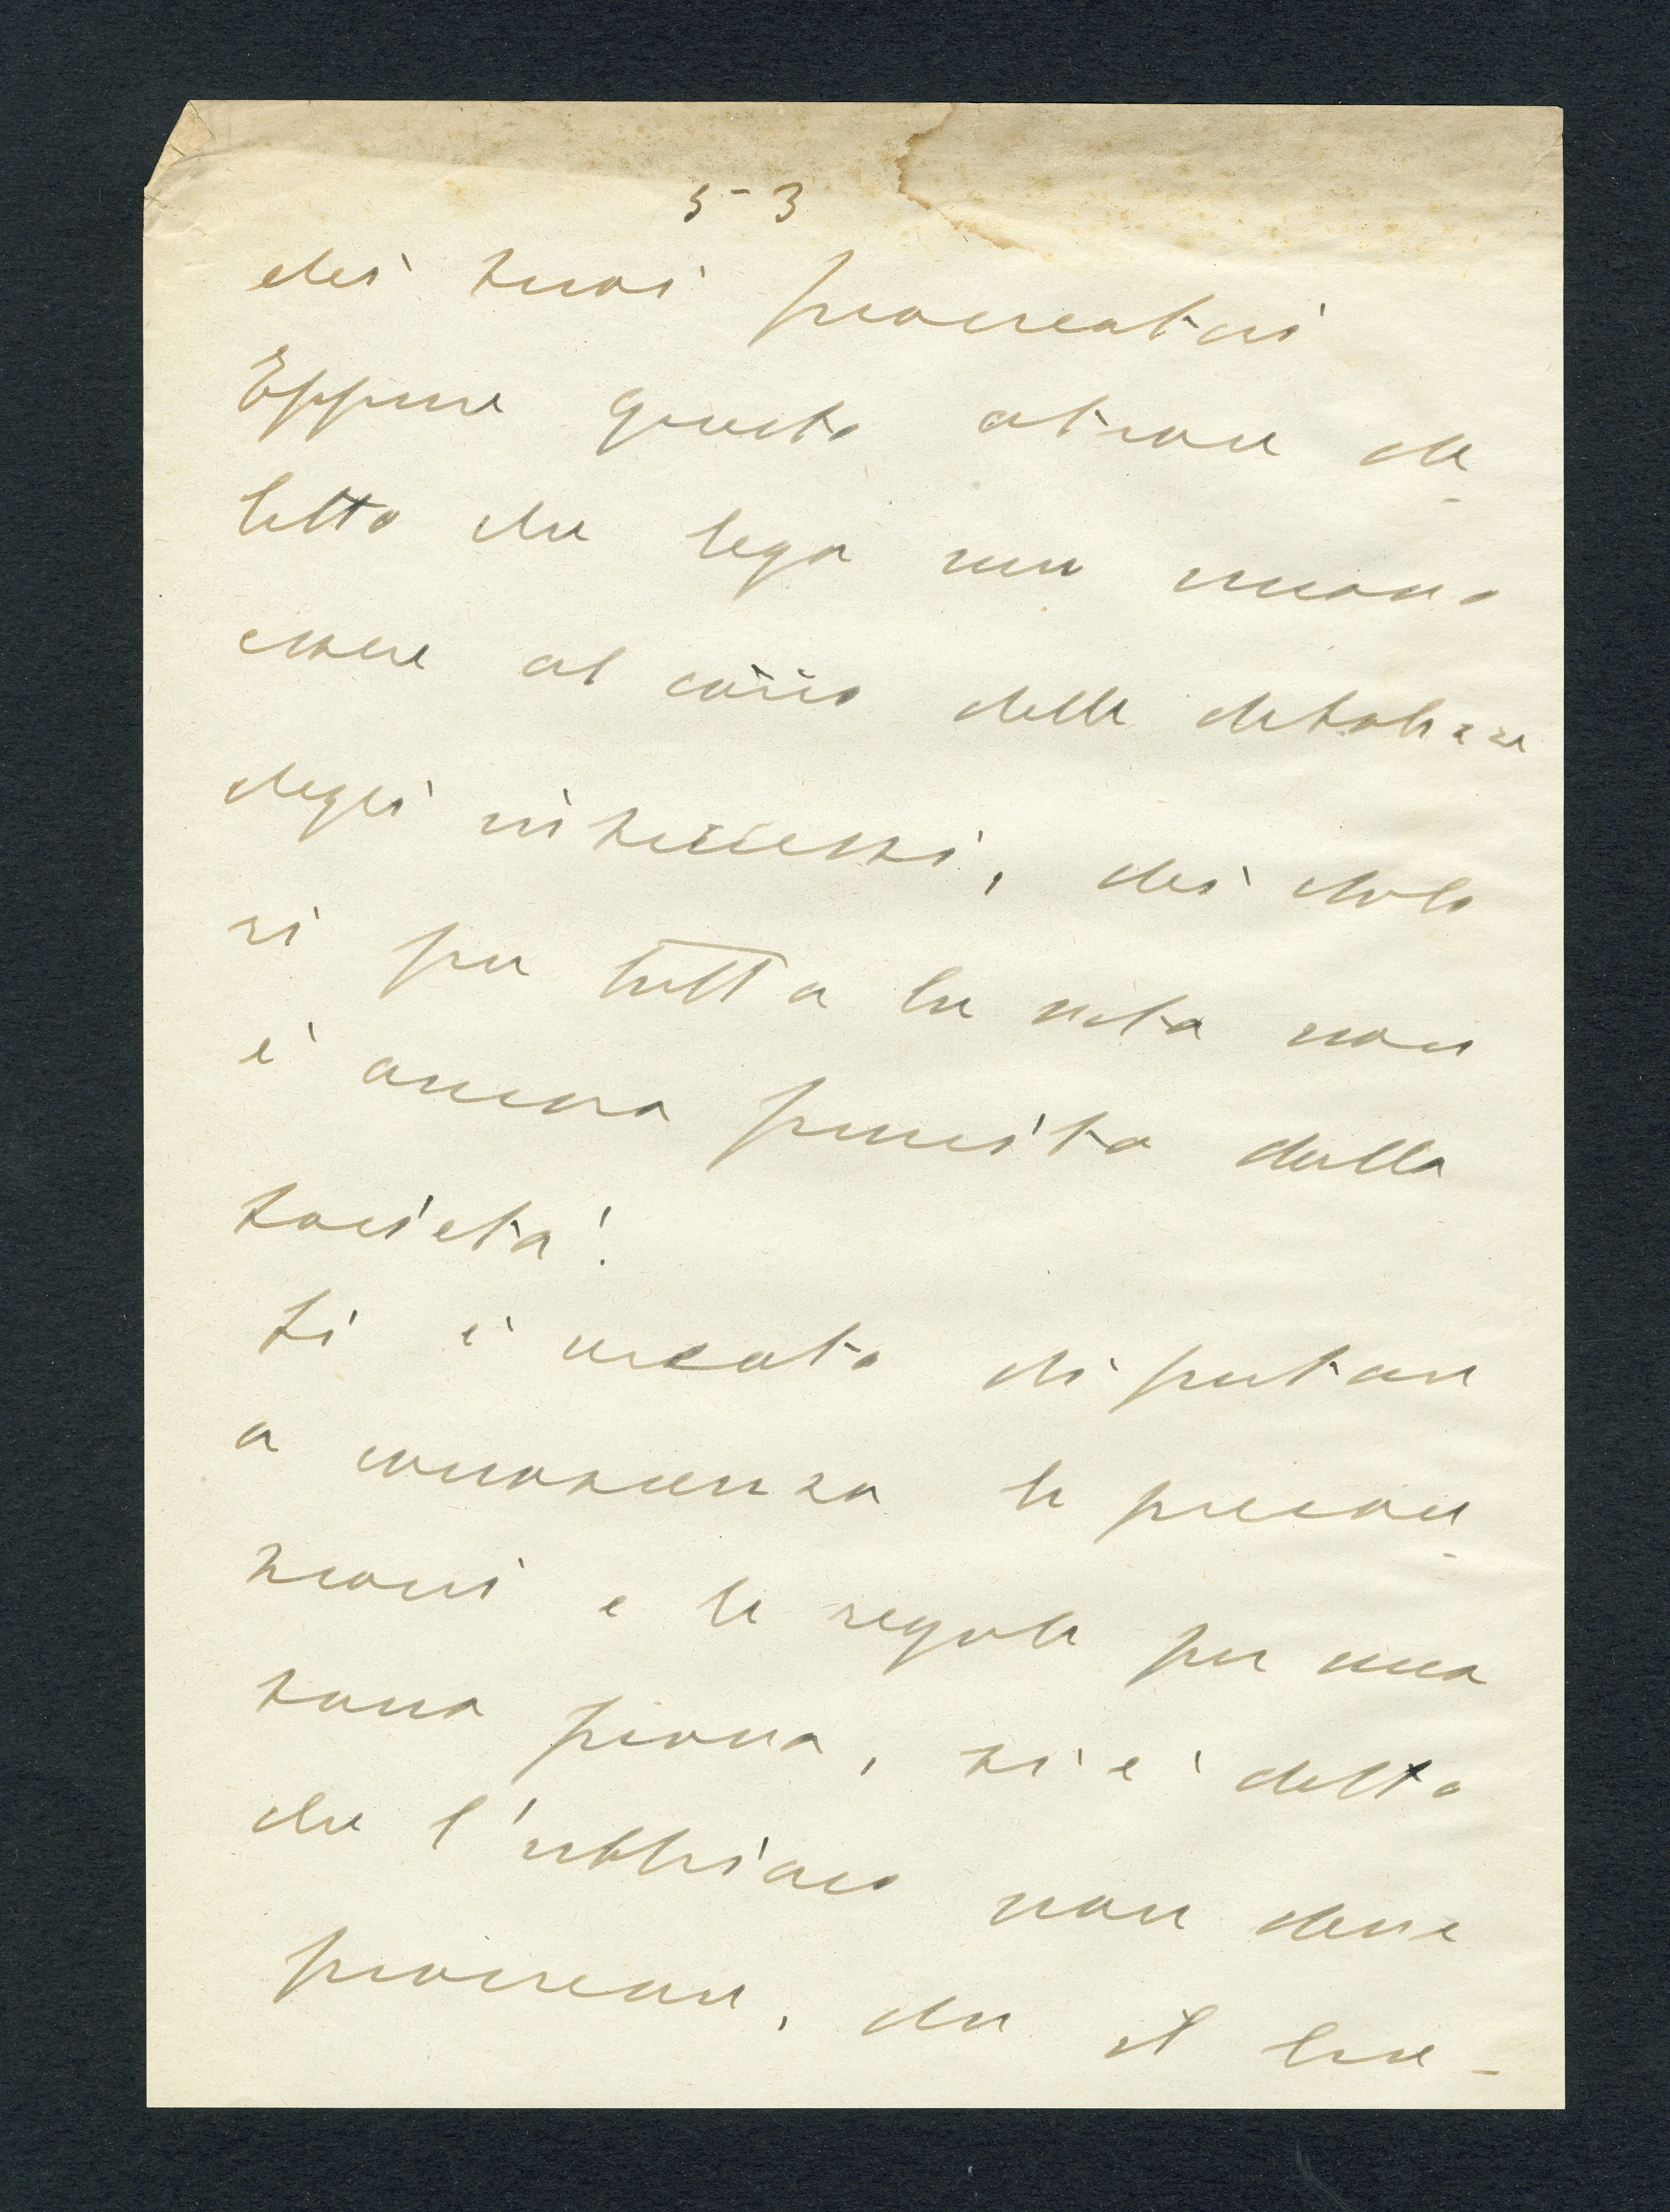 5-3
dei suoi procreatori
Eppure questo atroce de
litto che lega un nuovo
essere al carro delle debolezze
degli insuccessi, dei dolo
ri per tutta la vita non
è ancora punito dalla
società!
Si è cercato di portare
a conoscenza le precau-
zioni e le regole per una
sana prova, si è detto
che l'ubbriaco non deve
procreare, che il lue-